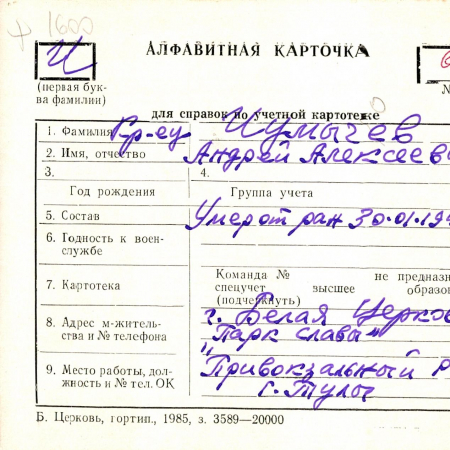 1600
И
АЛФАВИТНАЯ КАРТОЧКА
(первая бук-
ва фамилии)
№
для справок по учетной картотеке
1. Фамилия Гр-ец Чумычев
2. Имя, отчество Андрей Алексееви
3.
4.
Год рождения
Группа учета
5. Состав Умер от ран 30.01.19
6. Годность к воен-
службе
7. Картотека
Команда № не предназн
спецучет высшее образо
(подчеркнуть)
8. Адрес м-житель-
ства и № телефона
г. Белая Церко
"Парк славы"
9. Место работы, дол-
жность и № тел. ОК
Привокзальный Р
г. Тулы
Б. Церковь, гортип., 1985, з. 3589—20000